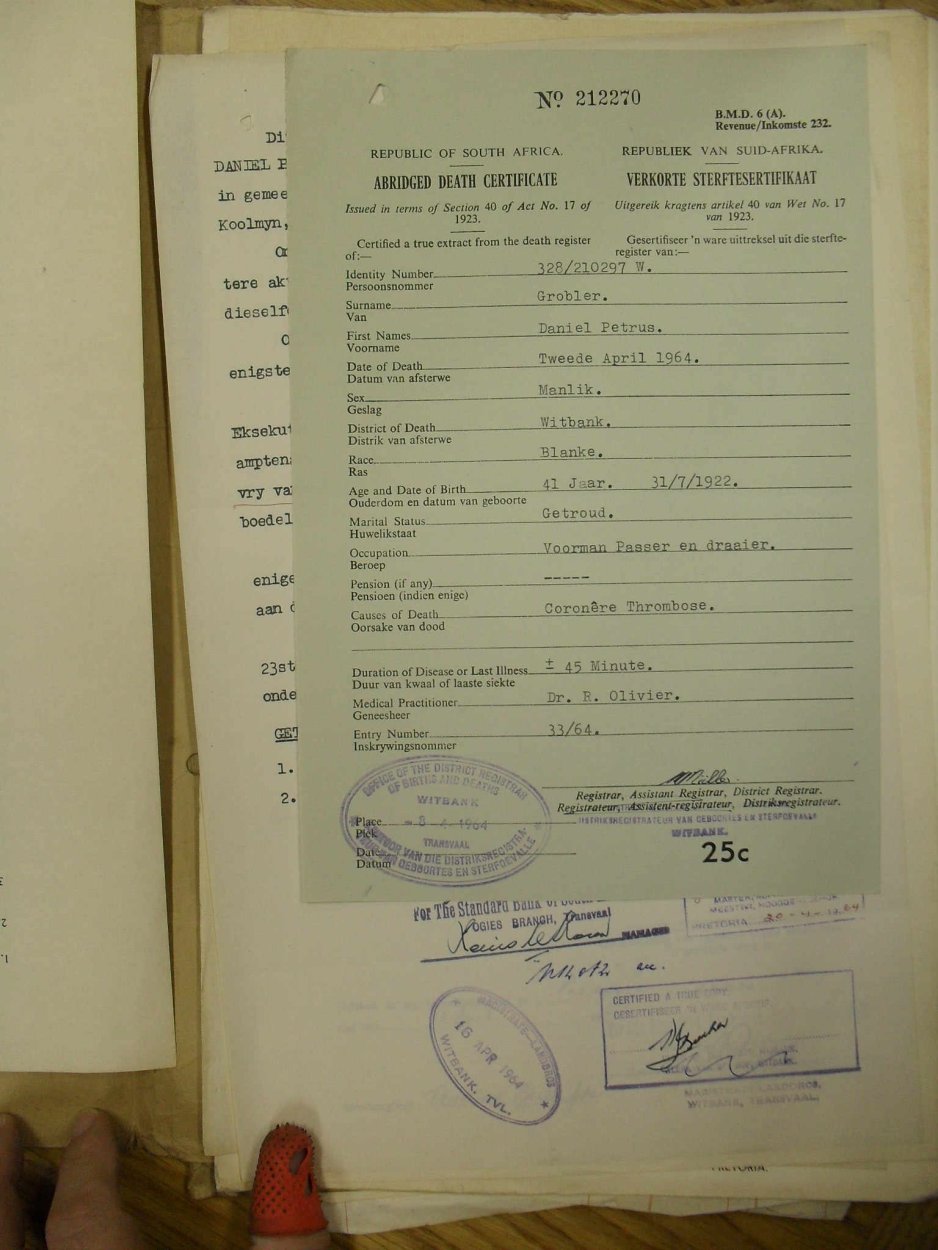 Nº 212270
B.M.D. 6 (A).
Revenue/Inkomste 232.
REPUBLIC OF SOUTH AFRICA.
REPUBLIEK VAN SUID-AFRIKA.
ABRIDGED DEATH CERTIFICATE
VERKORTE STERFTESERTIFIKAAT
Issued in terms of Section 40 of Act No. 17 of
1923.
Uitgereik kragtens artikel 40 van Wet No. 17
van 1923.
Certified a true extract from the death register
of:—
Gesertifiseer 'n ware uittreksel uit die sterfte-
register van:—
Identity Number 328/210297 W.
Persoonsnommer
Surname Grobler.
Van
First Names Daniel Petrus.
Voorname
Date of Death Tweede April 1964.
Datum van afsterwe
Sex Manlik.
Geslag
District of Death Witbank.
Distrik van afsterwe
Race Blanke.
Ras
Age and Date of Birth 41 Jaar. 31/7/1922.
Ouderdom en datum van geboorte
Marital Status Getroud.
Huwelikstaat
Occupation Voorman Passer en draaier.
Beroep
Pension (if any) -----
Pensioen (indien enige)
Causes of Death Coronêre Thrombose.
Oorsake van dood
Duration of Disease or Last Illness ± 45 Minute.
Duur van kwaal of laaste siekte
Medical Practitioner Dr. R. Olivier.
Geneesheer
Entry Number 33/64.
Inskrywingsnommer
Registrar, Assistant Registrar, District Registrar.
Registrateur, Assistent-registrateur, Distriksregistrateur.
DISTRIKSREGISTRATEUR VAN GEBOORTES EN STERFGEVALLE
WITBANK.
25c
OFFICE OF THE DISTRICT REGISTRAR
OF BIRTHS AND DEATHS
WITBANK
Place -8-4-1964
Plek
TRANSVAAL
Date
Datum
VAN DIE DISTRIKSREGISTRA-
GEBOORTES EN STERFGEVALLE
Di
DANIEL P
in gemee
Koolmyn,
tere ak
dieself
O
enigste
Eksekut
amptena
vry va
boedel
enige
aan d
23st
onde
GET
1.
2.
For The Standard Bank of South
OGIES BRANCH, Transvaal
MANAGER
PRETORIA 20-4-1964
MAGISTRATE-LANDDROS
16 APR 1964
WITBANK, TVL.
CERTIFIED A TRUE COPY.
GESERTIFISEER 'N WARE AFSKRIF.
MAGISTRATE-LANDDROS,
WITBANK, TRANSVAAL.
PRETORIA.